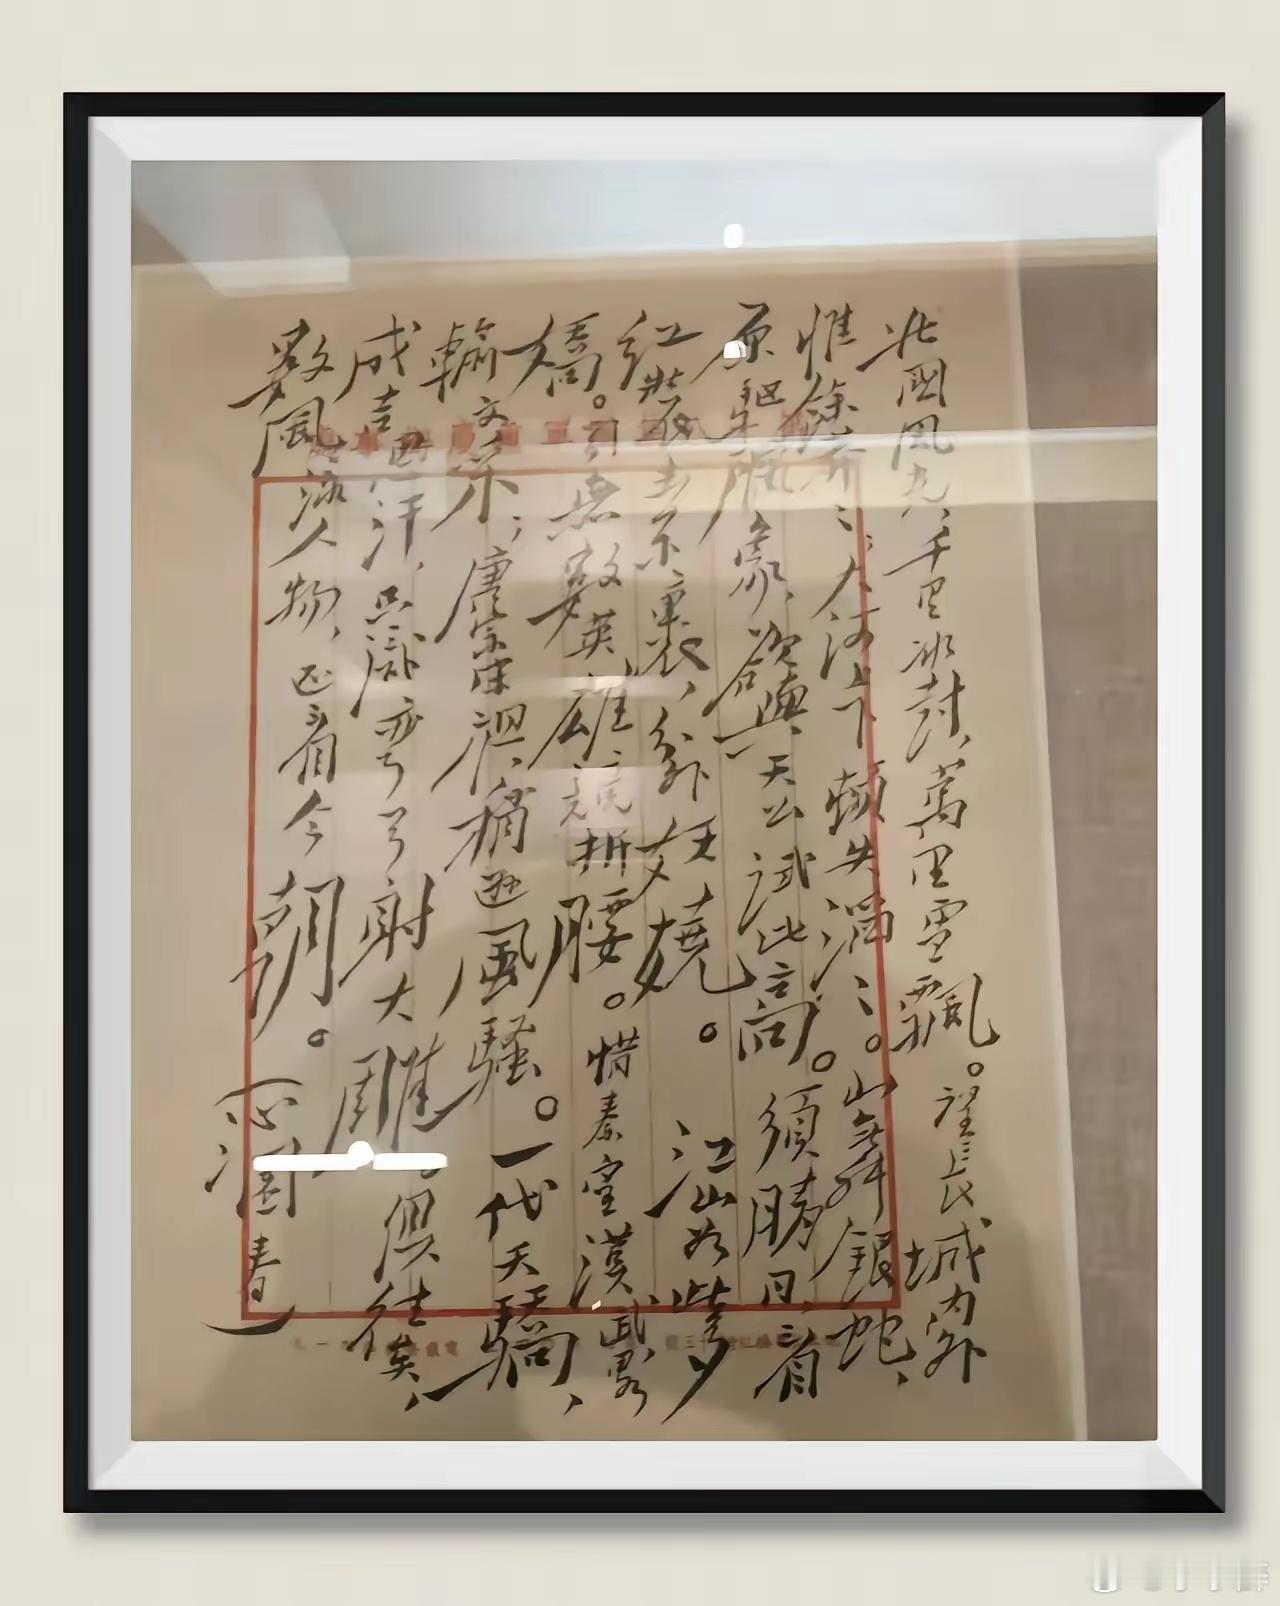 北國風光,千里冰封,萬里雪飄。望長城内外
惟餘莽々,大河上下頓失滔々。山舞銀蛇,
原驅臘象,欲與天公試比高。須晴日,看
红裝素裹,分外妖嬈。江山如此多
嬌。引無數英雄競折腰。惜秦皇漢武略
輸文采,唐宗宋祖,稍遜風騷。一代天驕,
成吉思汗,只識彎弓射大雕。俱往矣,
數風流人物,還看今朝。沁園春